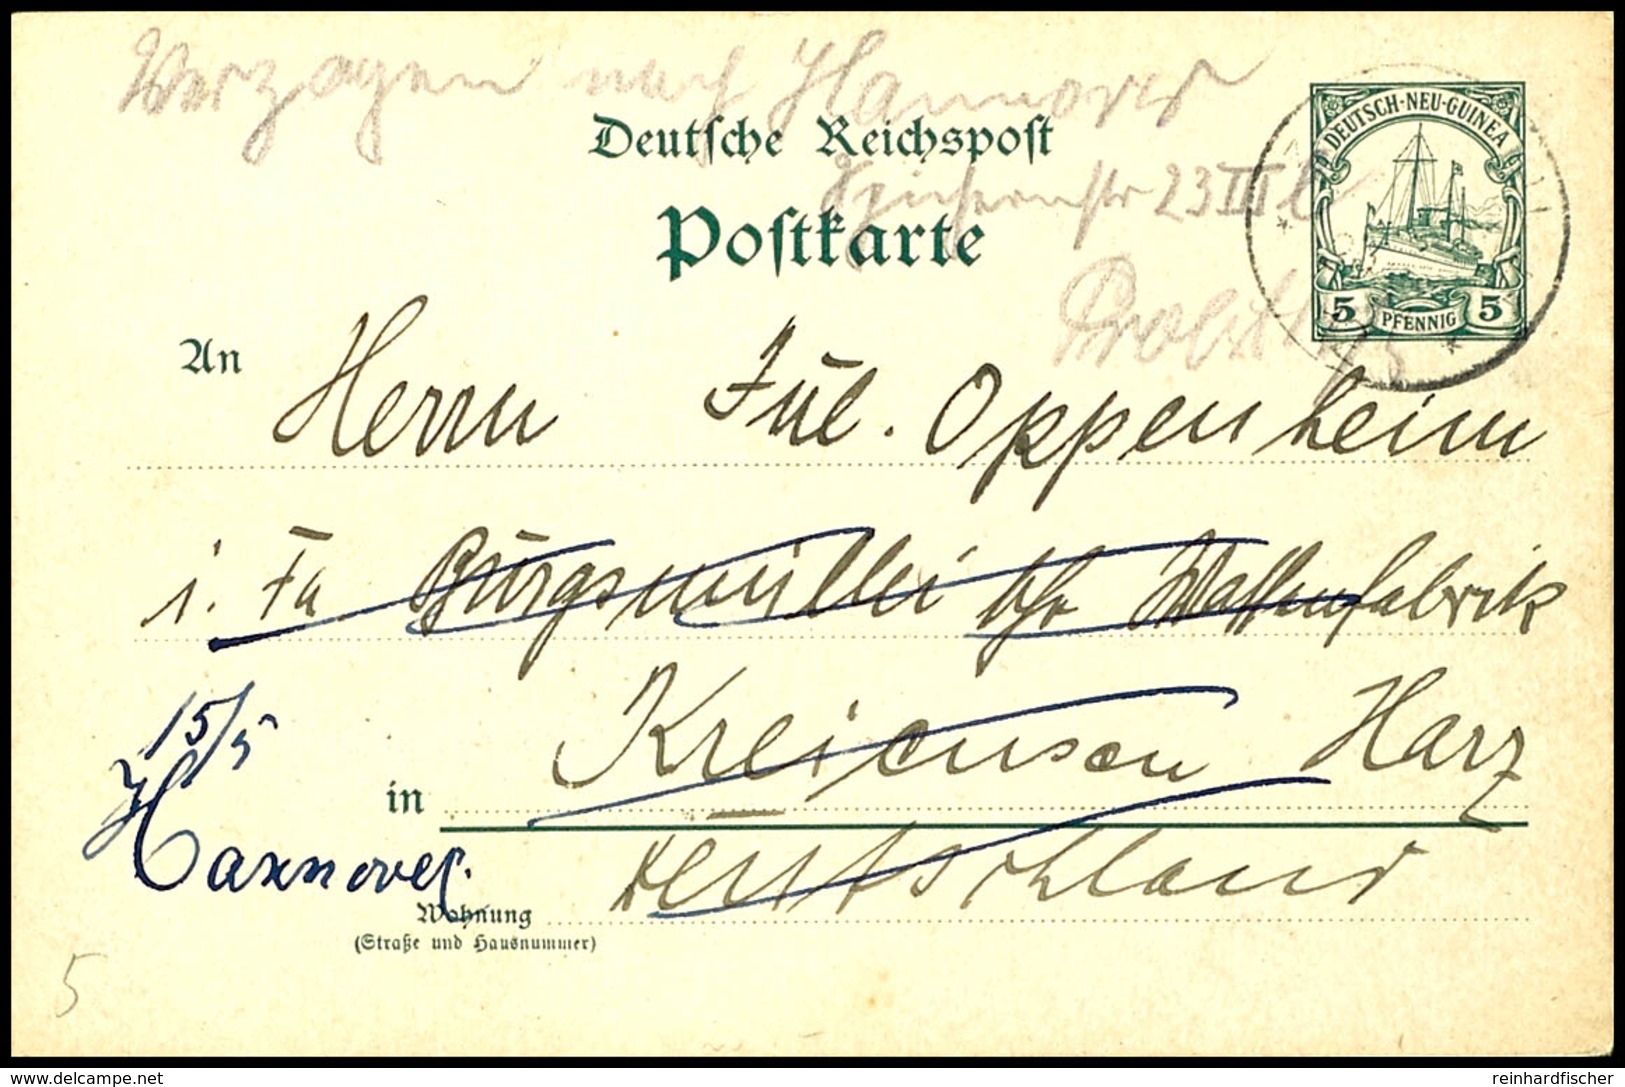 Verzogen nach Hannover
Deutsche Reichspost
23 III l
Postkarte
DEUTSCH-NEU-GUINEA
5 PFENNIG 5
An Herrn Jul. Oppenheim
i. Fa Burgsmüller Waffenfabrik
15/5
in Kreiensen Harz
Hannover.
Deutschland
Wohnung
(Straße und Hausnummer)
5
delcampe.net
reinhardfischer